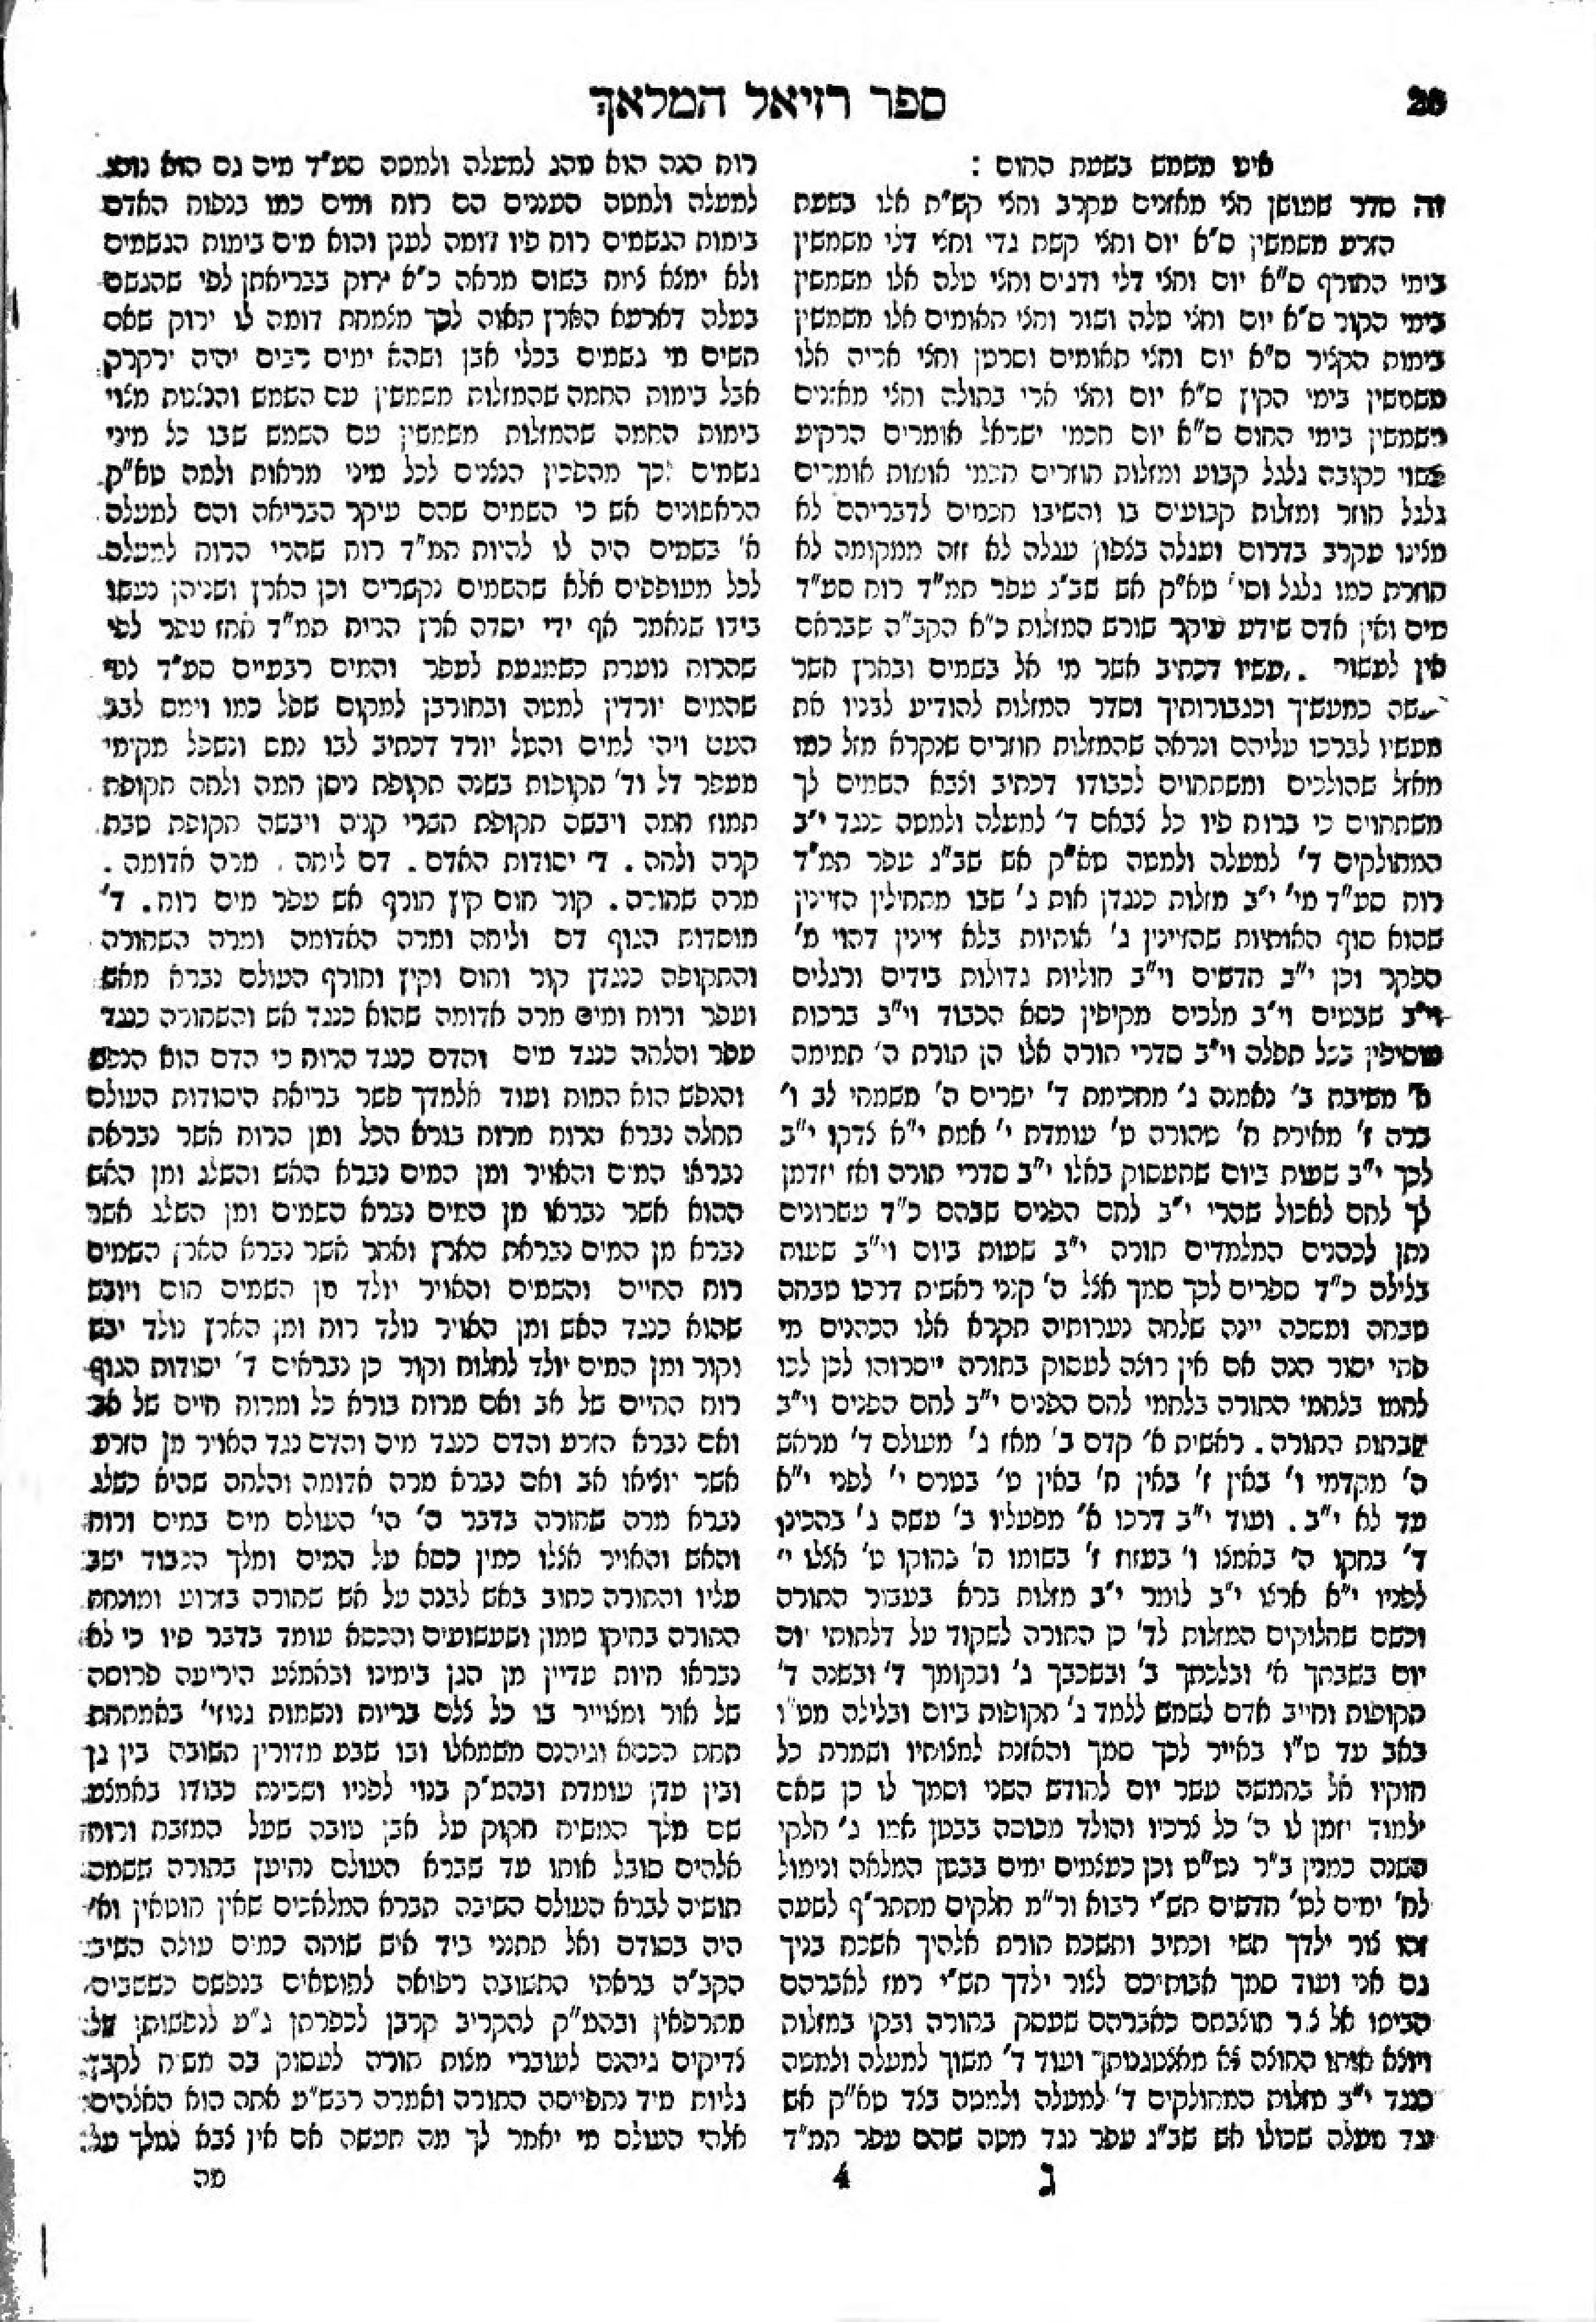 ספר רזיאל המלאך
26
אינו משמש בשעת החום :
זה סדר שמושן חצי מאזנים עקרב וחצי קש"ת אלו בשעת
הזרע משמשין ס"א יום וחצי קשת גדי וחצי דלי משמשין
בימי החורף ס"א יום וחצי דלי ודגים וחצי טלה אלו משמשין
בימי הקור ס"א יום וחצי טלה ושור וחצי תאומים אלו משמשין
בימות הקציר ס"א יום וחצי תאומים וסרטן וחצי אריה אלו
משמשין בימי הקיץ ס"א יום וחצי ארי בתולה וחצי מאזנים
משמשין בימי החום ס"א יום חכמי ישראל אומרים הרקיע
עשוי כקובה גלגל קבוע ומזלות חוזרים חכמי אומות אומרים
גלגל חוזר ומזלות קבועים בו והשיבו חכמים לדבריהם לא
מצינו עקרב בדרום ועגלה בצפון עגלה לא זזה ממקומה לא
חוזרת כמו גלגל וסי' טא"ק אש שב"ג עפר תמ"ד רוח סע"ד
מים ואין אדם שידע עיקר שורש המזלות כ"א הקב"ה שבראם
אין לעשור מעשיו דכתיב אשר מי אל בשמים ובארץ אשר
יעשה כמעשיך וכגבורותיך וסדר המזלות להודיע לבניו את
מעשיו לברכו עליהם ונראה שהמזלות חוזרים שנקרא מזל כמו
מאזל שהולכים ומשתחוים לכבודו דכתיב וצבא השמים לך
משתחוים כי ברוח פיו כל צבאם ד' למעלה ולמטה כנגד י"ב
המחולקים ד' למעלה ולמטה טא"ק אש שב"ג עפר תמ"ד
רוח סע"ד מי' י"ב מזלות כנגדן אות ג' שבו מתחילין הזיינין
שהוא סוף האותיות שהזיינין ג' אותיות בלא זיינין דהוי מ'
הפקר וכן י"ב חדשים וי"ב חוליות גדולות בידים ורגלים
וי"ב שבטים וי"ב מלכים מקיפין כסא הכבוד וי"ב ברכות
מוסיפין בכל תפלה וי"ב סדרי תורה אלו הן תורת ה' תמימה
א' משיבת ב' נאמנה ג' מחכימת ד' ישרים ה' משמחי לב ו'
ברה ז' מאירת ח' טהורה ט' עומדת י' אמת י"א צדקו י"ב
לכך י"ב שעות ביום שתעסוק באלו י"ב סדרי תורה ואז יזדמן
לך לחם לאכול שהרי י"ב לחם הפנים שבהם כ"ד עשרונים
נתן לכהנים המלמדים תורה י"ב שעות ביום וי"ב שעות
בלילה כ"ד ספרים לכך סמך אצל ה' קנני ראשית דרכו טבחה
טבחה ומסכה יינה שלחה נערותיה תקרא אלו הכהנים מי
פתי יסור הנה אם אין רוצה לעסוק בתורה ייסרוהו לכן לכו
לחמו בלחמי התורה בלחמי לחם הפנים י"ב לחם הפנים וי"ב
שבחות התורה. ראשית א' קדם ב' מאז ג' מעולם ד' מראש
ה' מקדמי ו' באין ז' באין ח' באין ט' בטרם י' לפני י"א
עד לא י"ב. ועוד י"ב דרכו א' מפעליו ב' עשה ג' בהכינו
ד' בחקו ה' באמצו ו' בעזוז ז' בשומו ח' בחוקו ט' אצלו י'
לפניו י"א ארצו י"ב לומר י"ב מזלות ברא בעבור התורה
וכשם שחלוקים המזלות לד' כן התורה לשקוד על דלתותי יום
יום בשבתך א' ובלכתך ב' ובשכבך ג' ובקומך ד' ובשנה ד'
תקופות וחייב אדם לשמש ללמד ג' תקופות ביום ובלילה מט"ו
באב עד ט"ו באייר לכך סמך והאזנת למצותיו ושמרת כל
חוקיו אל בחמשה עשר יום לחודש השני וסמך לו כן שאם
ילמוד יזמן לו ה' כל צרכיו והולד מכוסה בבטן אמו ג' חלקי
השנה כמנין ב"ר נט"ש וכן כעצמים ימים בבטן המלאה וכימול
לח' ימים לט' חדשים תש"י רבוא ור"מ חלקים מתתר"ף לשעה
זהו צור ילדך תשי וכתיב ותשכח תורת אלהיך אשכח בניך
גם אני ועוד סמך אבותיכם לצור ילדך תש"י רמז לאברהם
הביטו אל צור חוצבתם כאברהם שעסק בתורה ובקי במזלות
ויוצא אותו החוצה צא מאצטגנטתך ועוד ד' משוך למעלה ולמטה
כנגד י"ב מזלות המחולקים ד' למעלה ולמטה בגד טא"ק אש
נגד מעלה שכולו אש שב"ג עפר נגד מטה שהם עפר תמ"ד
רוח הנה הוא מהג למעלה ולמטה סע"ד מים גם הוא נוהג
למעלה ולמטה העננים הם רוח ומים כמו בנפוח האדם
בימות הגשמים רוח פיו דומה לענן והוא מים בימות הגשמים
ולא ימצא צמח בשום מראה כ"א ירוק בבריאתן לפי שהגשם
בעלה דארעא הארץ תאוה לכך מצמחת דומה לו ירוק שאם
תשים מי גשמים בכלי אבן ושהא ימים רבים יהיה ירקרק
אבל בימות החמה שהמזלות משמשין עם השמש והצצות מצוי
בימות החמה שהמזלות משמשין עם השמש שבו כל מיני
גשמים לכך מהפכין הצצים לכל מיני מראות ולמה טא"ק
הראשונים אש כי השמים שהם עיקר הבריאה והם למעלה
א' בשמים היה לו להיות תמ"ד רוח שהרי הרוח למעלה
לכל מעופפים אלא שהשמים נקשרים וכן הארץ ושניהן נעשו
בידו שנאמר אף ידי יסדה ארץ הרית תמ"ד אחז עפר לפי
שהרוח נוערת כשמגעת לעפר והמים רבעיים סע"ד לפי
שהמים יורדין למטה ובחורבן למקום שפל כמו וימס לבב
העם ויהי למים והטל יורד דכתיב לבו נמס ונשפל מקימי
מעפר דל וד' תקופות בשנה תקופת ניסן חמה ולחה תקופת
תמוז חמה ויבשה תקופת תשרי קרה ויבשה תקופת טבת
קרה ולחה. ד' יסודות האדם. דם ליחה. מרה אדומה.
מרה שחורה. קור חום קיץ חורף אש עפר מים רוח. ד'
מוסדות הגוף דם וליחה ומרה האדומה ומרה השחורה
והתקופה כנגדן קור וחום וקיץ וחורף העולם נברא מאש
ועפר ורוח ומים מרה אדומה שהוא כנגד אש והשחורה כנגד
עפר והלחה כנגד מים והדם כנגד הרוח כי הדם הוא הנפש
והנפש הוא המוח ועוד אלמדך פשר בריאת היסודות העולם
תחלה נברא הרוח מרוח בורא הכל ומן הרוח אשר נבראת
נבראו המים והאויר ומן המים נברא האש והשלג ומן האש
ההוא אשר נבראו מן המים נברא השמים ומן השלג אשר
נברא מן המים נבראת הארץ ואחר אשר נברא הארץ השמים
רוח החיים והשמים והאויר יולד מן השמים חום ויובש
שהוא כנגד האש ומן האויר נולד רוח ומן הארץ נולד יבש
וקור ומן המים יולד לחלוח וקור כן נבראים ד' יסודות הגוף
רוח החיים של אב ואם מרוח בורא כל ומרוח חיים של אב
ואם נברא הזרע והדם כנגד מים והדם נגד האויר מן הזרע
אשר יוציאו אב ואם נברא מרה אדומה והלחה שהיא כשלג
נברא מרה שחורה בדבר ה' הי' העולם מים במים ורוח
והאש והאויר אצלו כמין כסא על המים ומלך הכבוד ישב
עליו והתורה כתוב באש לבנה על אש שחורה בזרוע ומונחת
התורה בחיקו טמון ושעשועים והכסא עומד בדבר פיו כי לא
נבראו חיות עדיין מן הגן בימינו ובאמצע היריעה פרוסה
של אור ומצוייר בו כל צלם בריות ונשמות גנוזי' באמתחת
תחת הכסא וגיהנם משמאלו ובו שבע מדורין תשובה בין גן
ובין עדן עומדת ובהמ"ק בנוי לפניו ושכינת כבודו באמצע
שם מלך המשיח חקוק על אבן טובה שעל המזבח ורוח
אלהים סובל אותו עד שברא העולם נתיעץ בתורה ששמה
תושיה לברא העולם השיבה תברא המלאכים שאין חוטאין וא'
היה בסודם ואל תתנני ביד איש שותה כמים עולה השיב
הקב"ה בראתי התשובה רפואה לחוטאים בנפשם כששבים
מתרפאין ובהמ"ק להקריב קרבן לכפרתן ג"ע לנפשותן של
צדיקים גיהנם לעוברי מצות תורה לעסוק בה מש"ח לקבץ
גליות מיד נתפייסה התורה ואמרה רבש"ע אתה הוא האלהים
אלהי העולם מי יאמר לך מה תעשה אם אין צבא למלך על
מה
ג
4